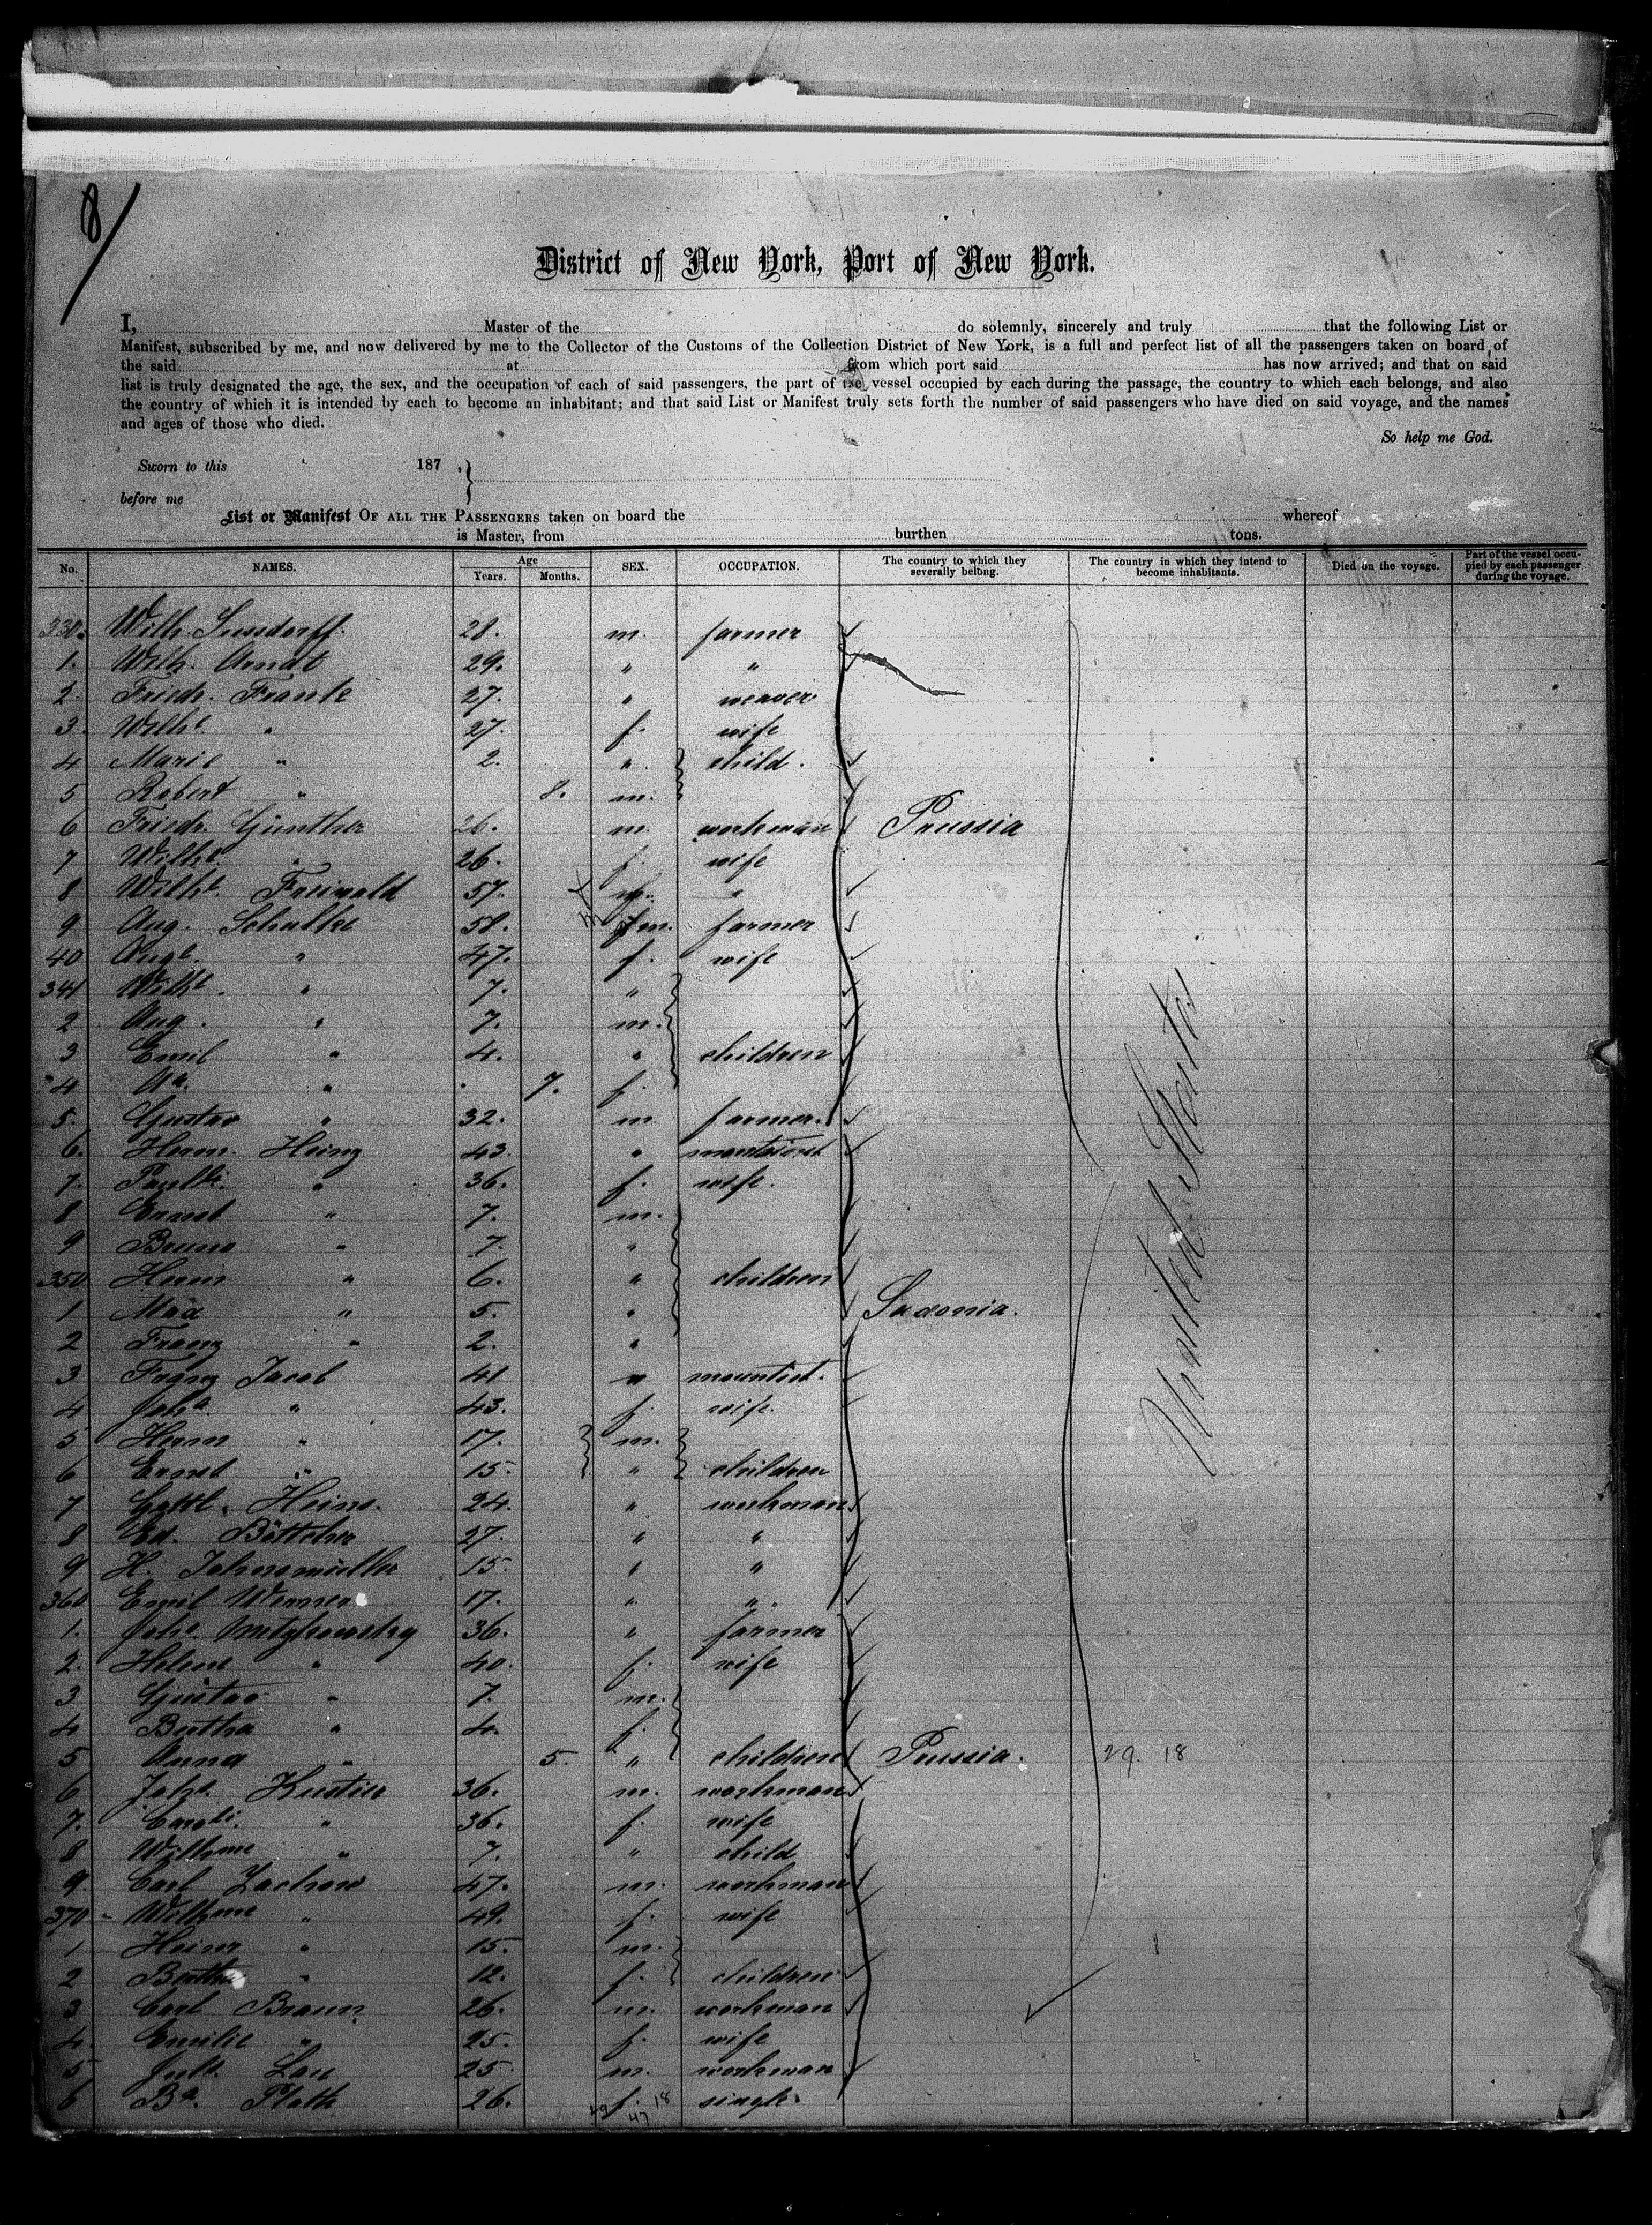 8/
District of New York, Port of New York.
I, Master of the do solemnly, sincerely and truly that the following List or
Manifest, subscribed by me, and now delivered by me to the Collector of the Customs of the Collection District of New York, is a full and perfect list of all the passengers taken on board of
the said at from which port said has now arrived; and that on said
list is truly designated the age, the sex, and the occupation of each of said passengers, the part of the vessel occupied by each during the passage, the country to which each belongs, and also
the country of which it is intended by each to become an inhabitant; and that said List or Manifest truly sets forth the number of said passengers who have died on said voyage, and the names
and ages of those who died.
So help me God.
Sworn to this 187 ,
before me
List or Manifest OF ALL THE PASSENGERS taken on board the whereof
is Master, from burthen tons.
No. NAMES. Age Years. Months. SEX. OCCUPATION. The country to which they severally belong. The country in which they intend to become inhabitants. Died on the voyage. Part of the vessel occupied by each passenger during the voyage.
330. Wilh. Sussdorff. 28. m. farmer
1. Wilh. Arndt 29. " "
2. Friedr. Franke 27. " weaver
3. Wilhe. " 27. f. wife
4 Marie " 2. " child.
5 Robert " 8. m.
6 Friedr. Günther 26. m. workman Prussia
7 Wilhe. " 26. f. wife
8 Wilhe. Freiwald 57. "
9 Aug. Schultke 58. m. farmer
40 Auge. " 47. f. wife
341 Wilhe. " 7. "
2 Aug. " 7. m.
3 Emil " 4. " children
4 " 7. f.
5. Gustav " 32. m farmer.
6. Herm. Heinz 43. "
7. Paulle. " 36. f. wife.
8 Ernst " 7. m.
9 Bruno " 7. "
350 Herm " 6. " children
1 Max " 5. " Saxonia.
2 Franz " 2. "
3 Franz Jacob 41 "
4 Joha. " 43. f. wife.
5 Herm " 17. m.
6 Ernst " 15. " children
7 Gottl. Heine. 24. " workman
8 Ed. Böttcher 27. " "
9 H. 15. " "
360 Emil Werner 17. " ".
1. Johe. 36. " farmer
2. Helene " 40. f. wife
3 Gustav " 7. m.
4 Bertha " 4. f.
5 Anna " 5. " children Prussia. 29. 18
6 Johe. 36. m. workman
7. " 36. f. wife
8 Wilhme " 7. " child
9 Carl Zachow 47. m. workman
370 Wilhme " 49. f. wife
1 Heinr " 15. m.
2 Bertha " 12. f. children
3 Carl Braun 26. m. workman
4 Emilie " 25. f. wife
5 Lau 25 m. workman
6 Ba. Plath 26. f. single
United States
18
47